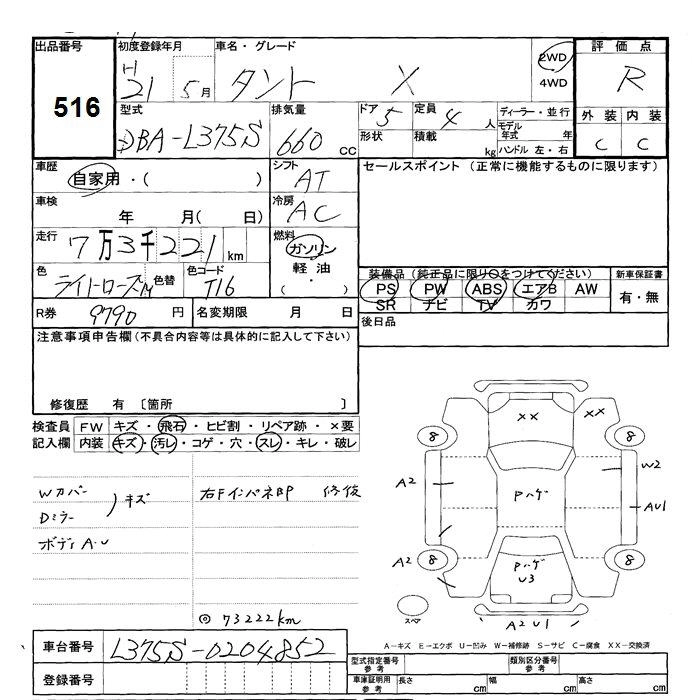 出品番号 初度登録年月 車名・グレード 評価点
516
H21 5月 タント X 2WD 4WD R
型式 排気量 ドア 定員 ディーラー・並行 外装 内装
DBA-L375S 660 CC 5 4人 モデル年式 年 C C
形状 積載 kg ハンドル 左・右
車歴 シフト セールスポイント (正常に機能するものに限ります)
自家用・( ) AT
車検 冷房
年 月( 日) AC
走行 燃料
7万3千221km ガソリン
軽油
( ・ )
色 色替 色コード 装備品 (純正品に限り○をつけてください) 新車保証書
ライトローズM T16 PS PW ABS エアB AW 有・無
SR ナビ TV カワ
R券 9790 円 名変期限 月 日 後日品
注意事項申告欄(不具合内容等は具体的に記入して下さい)
修復歴 有 〔箇所 〕
検査員 FW キズ・飛石・ヒビ割・リペア跡・×要
記入欄 内装 キズ・汚レ・コゲ・穴・スレ・キレ・破レ
Wカバー
Dミラー
キズ
ボディA・U
右Fインパネ部 修復
◎ 73222km
XX XX
8 8
W2
A2 Pハゲ AU1
A2 8 Pハゲ 8
U3
スペア A2 U1
A-キズ E-エクボ U-凹み W-補修跡 S-サビ C-腐食 XX-交換済
車台番号 L375S-0204852
登録番号
型式指定番号 参考 類別区分番号 参考
車庫証明用 参考 長さ cm 幅 cm 高さ cm